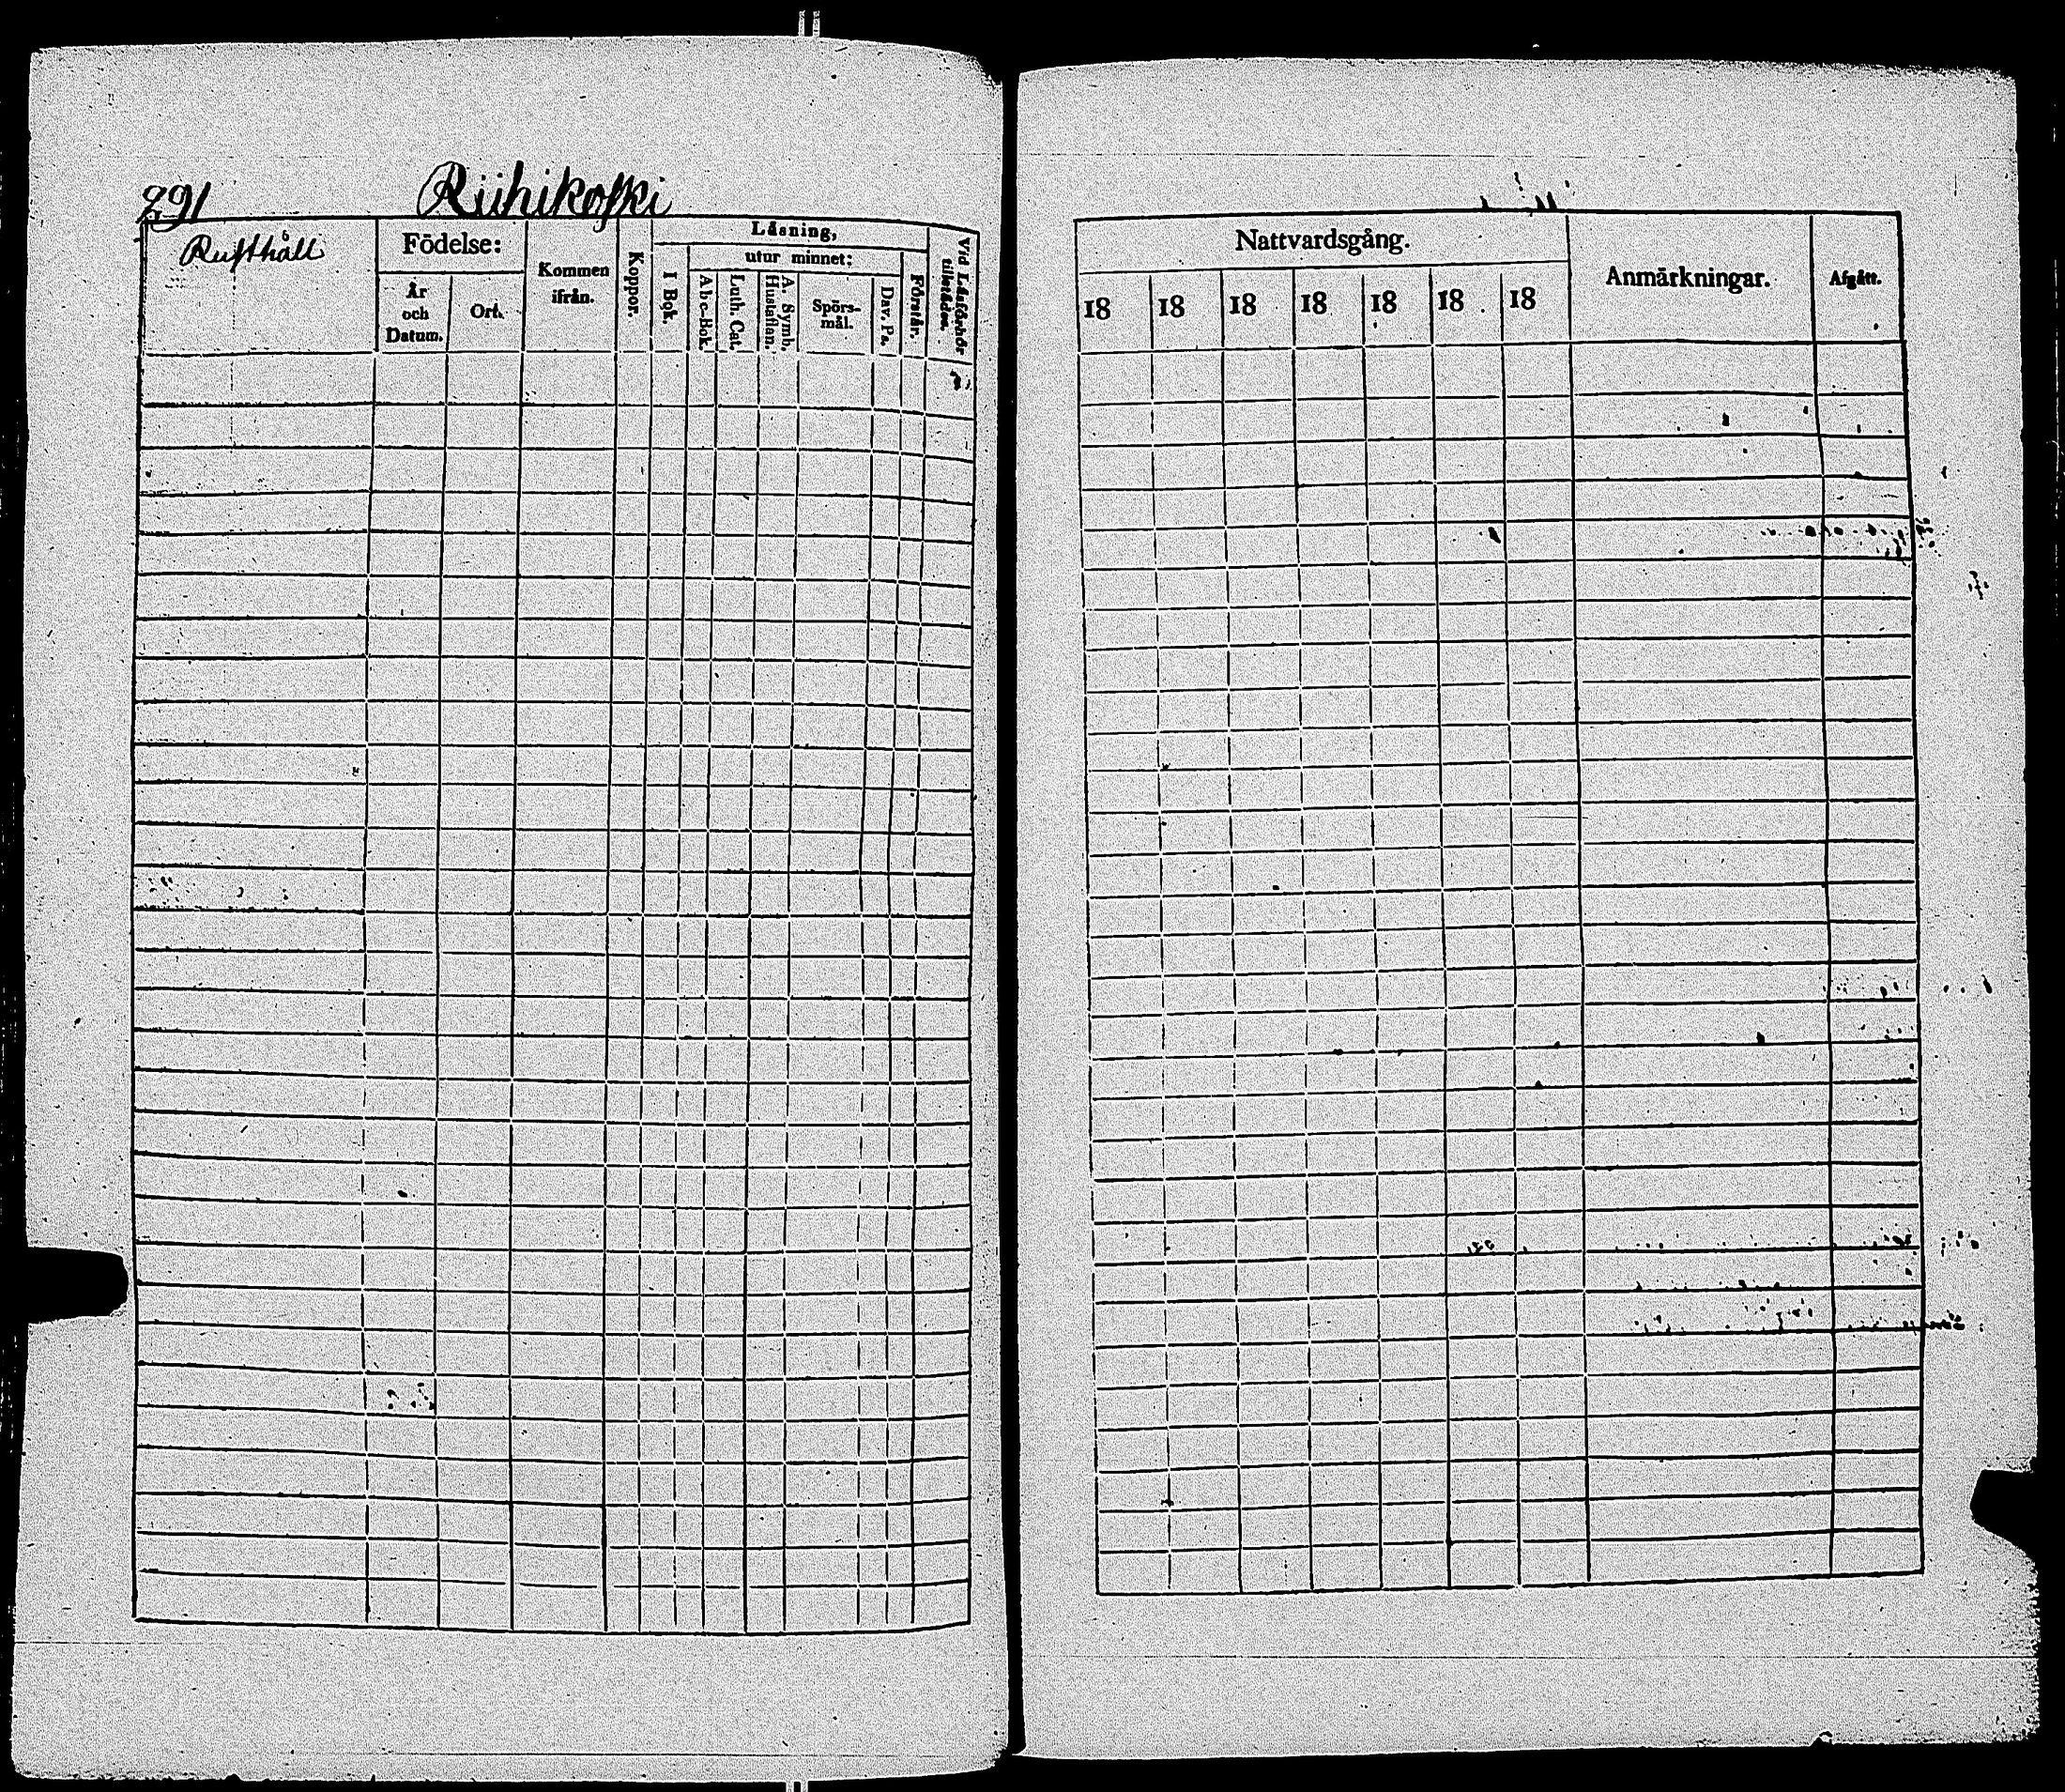 291 Riihikoski
Rusthåll
Födelse:
År och Datum.
Ort.
Kommen ifrån.
Koppor.
Läsning,
I Bok.
utur minnet:
Abc-Bok.
Luth. Cat.
A. Symb. Hustaflan.
Spörs-mål.
Dav. Ps.
Förstår.
Vid Läsförhör tillstädes.
Nattvardsgång.
18 18 18 18 18 18 18
Anmärkningar.
Afgått.